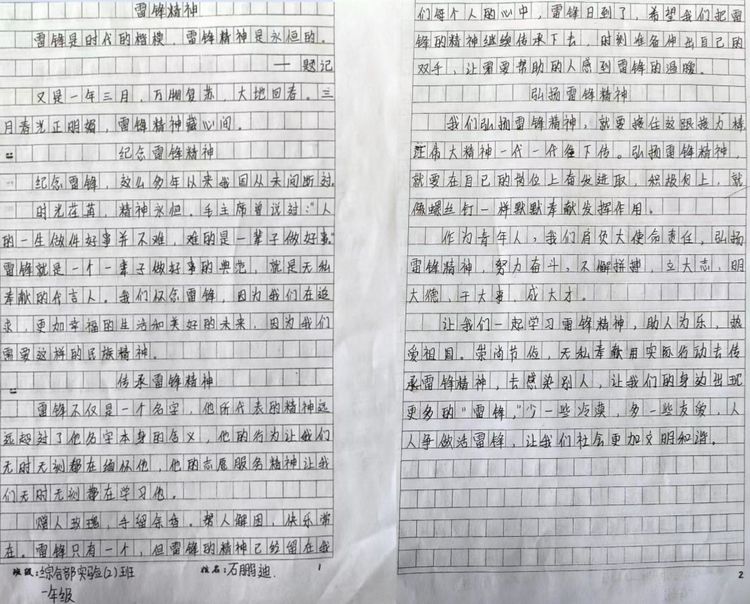 雷锋精神
雷锋是时代的楷模，雷锋精神是永恒的。
——题记
又是一年三月，万物复苏，大地回春。三
月春光正明媚，雷锋精神藏心间。
纪念雷锋精神
纪念雷锋，这么多年以来我国从未间断过。
时光荏苒，精神永恒。毛主席曾说过："人
的一生做件好事并不难，难的是一辈子做好事"
雷锋就是一个一辈子做好事的典范，就是无私
奉献的代言人。我们纪念雷锋，因为我们在追
求，更加幸福的生活和美好的未来，因为我们
需要这样的民族精神。
传承雷锋精神
雷锋不仅是一个名字，他所代表的精神远
远超过了他名字本身的含义，他的行为让我们
无时无刻都在缅怀他，他的志愿服务精神让我
们无时无刻都在学习他。
赠人玫瑰，手留余香。帮人解困，快乐常
在。雷锋只有一个，但雷锋的精神已经留在我
班级：综合部实验(2)班 姓名：石鹏迪 1
一年级
们每个人的心中，雷锋日到了，希望我们把雷
锋的精神继续传承下去，时刻准备伸出自己的
双手，让需要帮助的人感到雷锋的温暖。
弘扬雷锋精神
我们弘扬雷锋精神，就要接住这跟接力棒
让伟大精神一代一代往下传。弘扬雷锋精神，
就要在自己的岗位上奋发进取，积极向上，就
像螺丝钉一样默默奉献发挥作用。
作为青年人，我们肩负大使命责任，弘扬
雷锋精神，努力奋斗，不懈拼搏，立大志，明
大德，干大事，成大才。
让我们一起学习雷锋精神，助人为乐，热
爱祖国。崇尚节俭，无私奉献用实际行动去传
承雷锋精神，去感染别人，让我们的身边出现
更多的"雷锋，"少一些冷漠，多一些友爱，人
人争做活雷锋，让我们社会更加文明和谐。
2